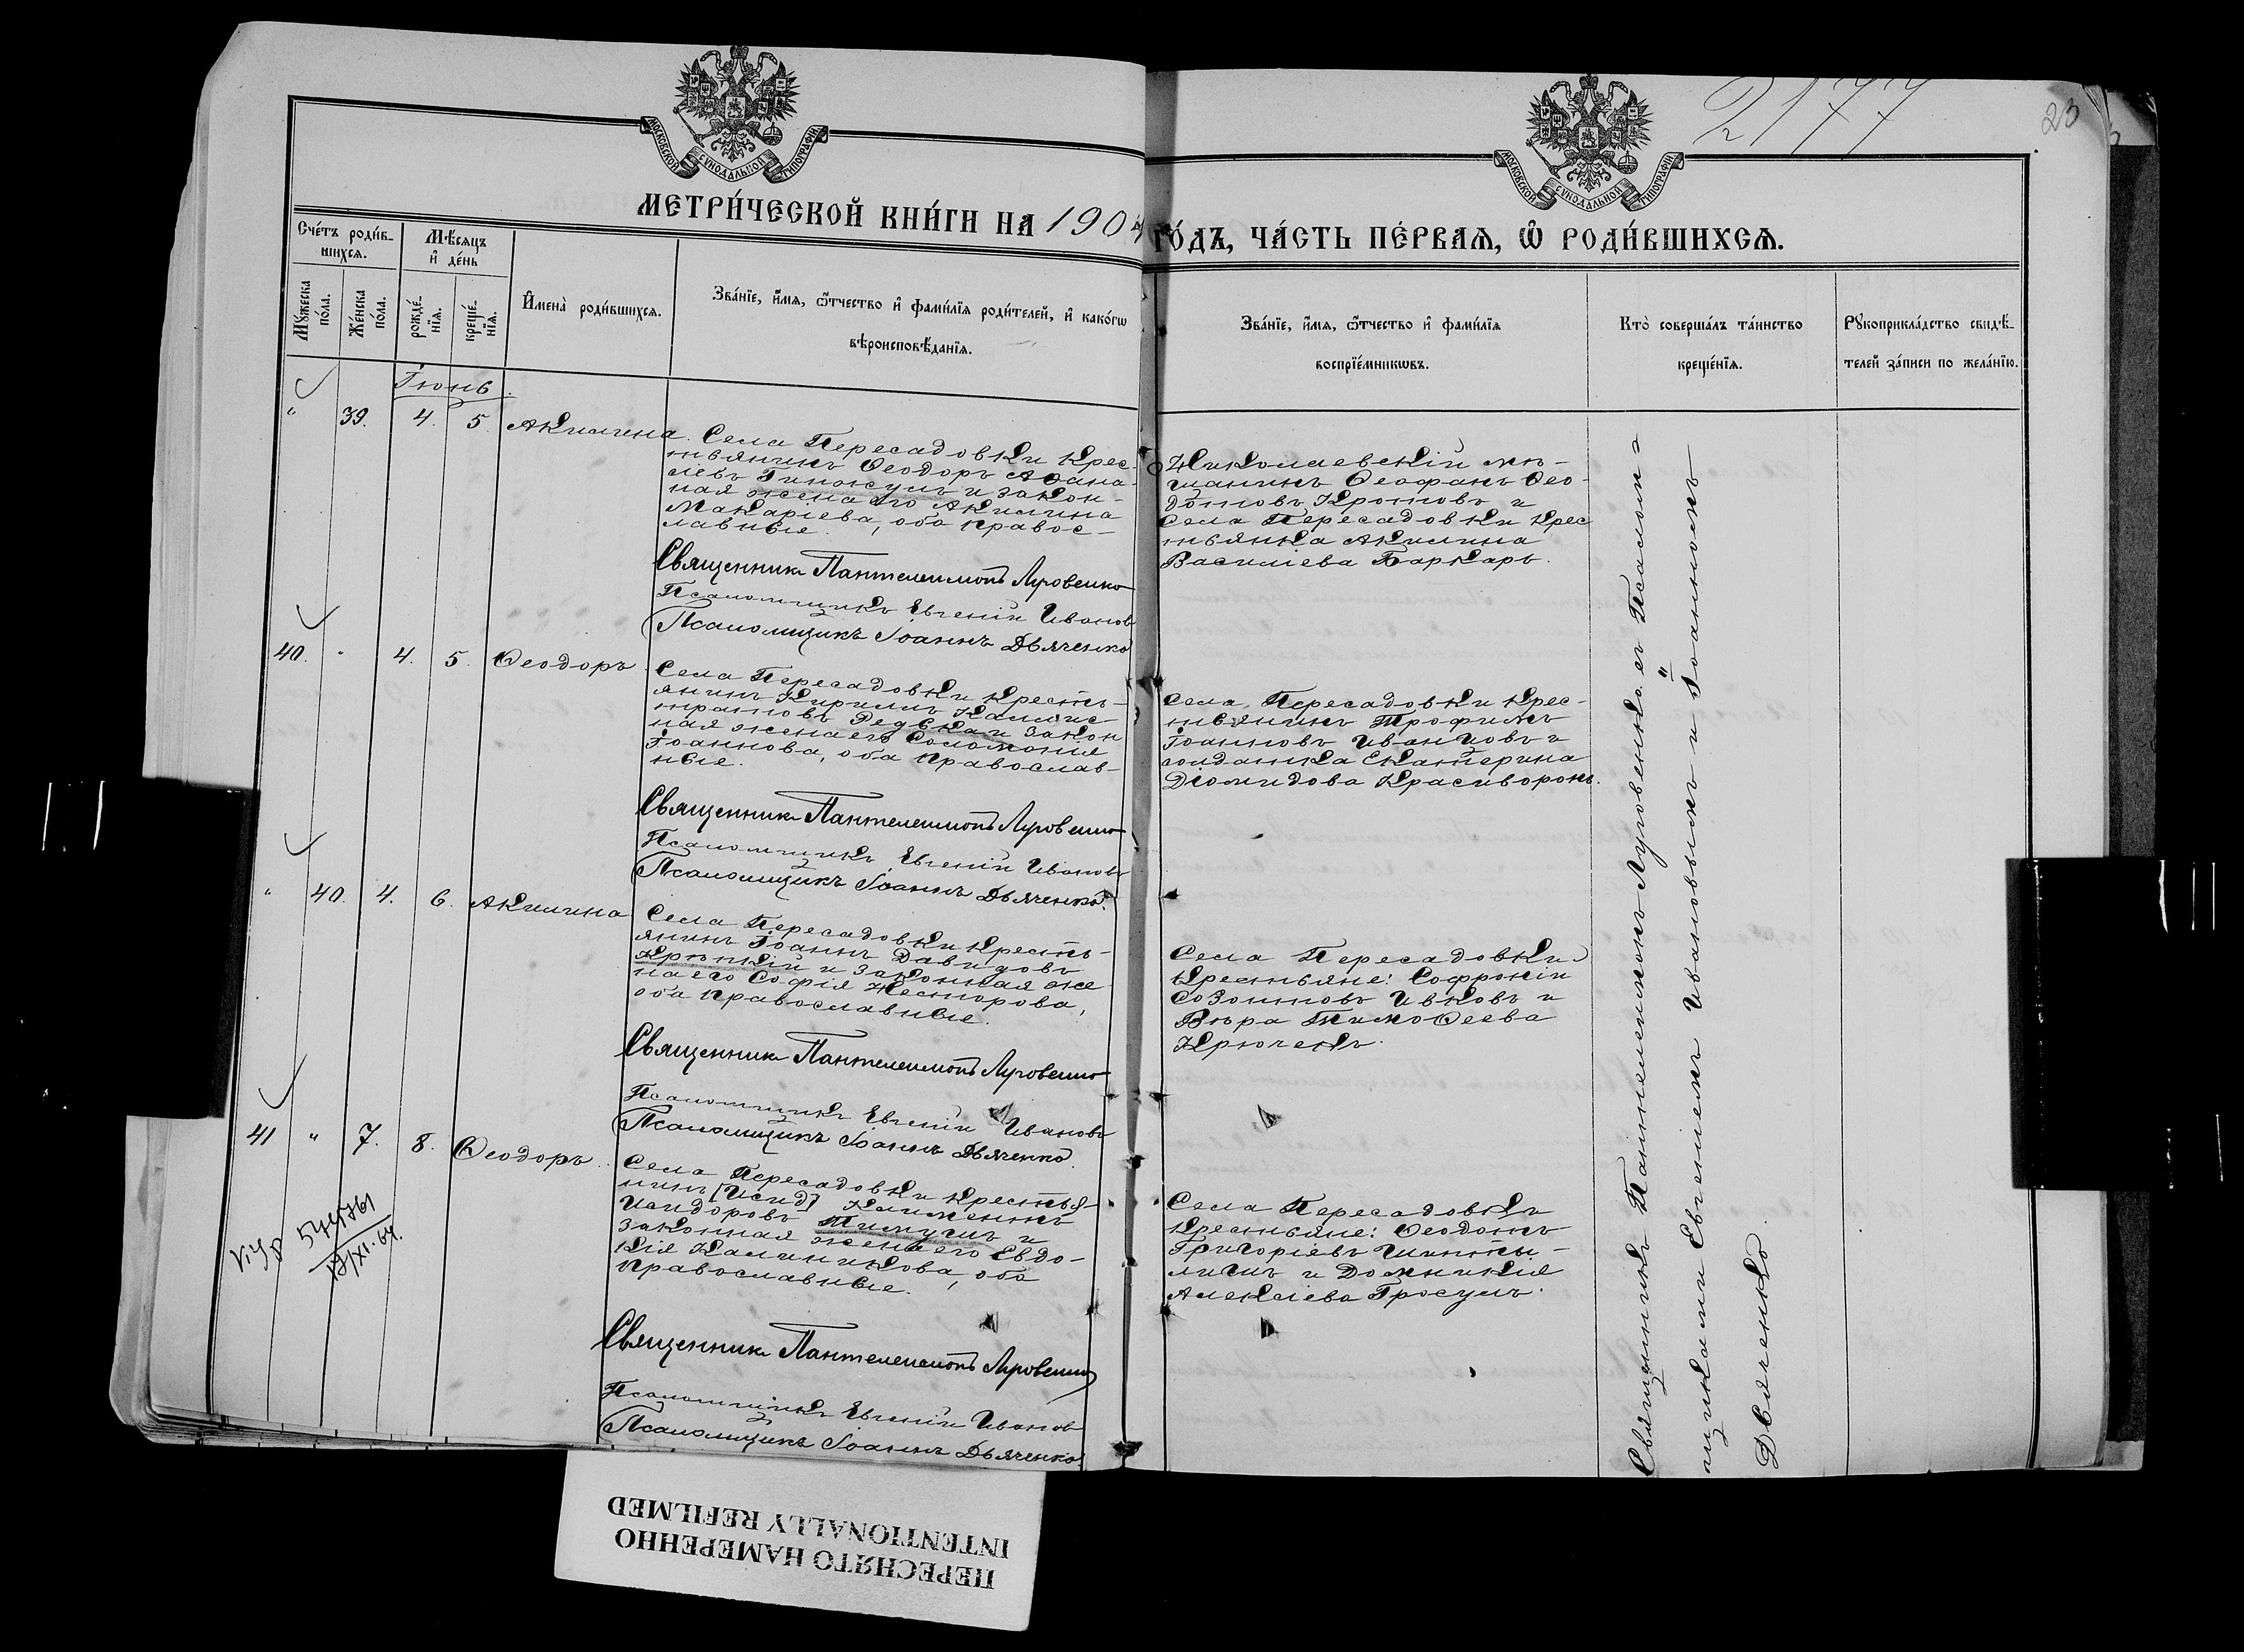 МОСКОВСКОЙ СѴНОДАЛЬНОЙ ТИПОГРАФІИ
МОСКОВСКОЙ СѴНОДАЛЬНОЙ ТИПОГРАФІИ
2177
23
МЕТРИ́ЧЕСКОЙ КНИ́ГИ НА 1904 ГО́ДЪ, ЧА́СТЬ ПЕ́РВАѦ, Ѽ РОДИ́ВШИХСѦ.
Сче́тъ роди́в-
шихсѧ.
Мѣ́сѧцъ
и҆ де́нь
Мꙋ́жеска
по́ла.
Же́нска
по́ла.
рожде́-
нїѧ.
креще́-
нїѧ.
И҆мена̀ роди́вшихсѧ.
Зва́нїе, и҆́мѧ, ѻ҆́тчество и҆ фами́лїѧ роди́телей, и҆ како́гѡ
вѣроисповѣ́данїѧ.
Зва́нїе, и҆́мѧ, ѻ҆́тчество и҆ фами́лїѧ
воспрїе́мникѡвъ.
Кто̀ соверша́лъ та́инство
креще́нїѧ.
Рꙋкоприкла́дство свидѣ́-
телей за́писи по жела́нїю.
Іюнь.
" 39. 4. 5. Акилина.
Села Пересадовки крес-
тьянинъ Ѳеодоръ Аѳана-
сіевъ Гинжулъ и закон-
ная жена его Акилина
Макаріева, оба правос-
лавные.
Священникъ Пантелеимонъ Луговенко
Псаломщикъ Евгеній Ивановъ
Псаломщикъ Іоаннъ Дьяченко
Николаевскій мѣ-
щанинъ Ѳеофанъ Ѳео-
дотовъ Кротовъ и
села Пересадовки крес
тьянка Акилина
Василіева Баркарь.
40. " 4. 5. Ѳеодоръ
Села Пересадовки кресть-
янинъ Кириллъ Каллис-
тратовъ Редька и закон
ная жена его Соломонія
Іоаннова, оба православ-
ные.
Священникъ Пантелеимонъ Луговенко
Псаломщикъ Евгеній Ивановъ
Псаломщикъ Іоаннъ Дьяченко.
Села Пересадовки крес-
тьянинъ Трофимъ
Іоанновъ Иванцовъ и
солдатка Екатерина
Діомидова Красиворонъ.
" 40. 4. 6. Акилина
Села Пересадовки кресть-
янинъ Іоаннъ Давидовъ
Крѣпкій и законная же
на его Софія Несторова,
оба православные.
Священникъ Пантелеимонъ Луговенко
Псаломщикъ Евгеній Ивановъ
Псаломщикъ Іоаннъ Дьяченко.
Села Пересадовки
крестьяне: Софроній
Созонтовъ Ивковъ и
Вѣра Тимоѳеева
Крючекъ.
41 " 7. 8. Ѳеодоръ.
Села Пересадовки крестья-
нинъ [Исид] Климентъ
Исидоровъ Тимулъ и
законная жена его Евдо-
кія Калиникова, оба
православные.
Священникъ Пантелеимонъ Луговенко
Псаломщикъ Евгеній Ивановъ
Псаломщикъ Іоаннъ Дьяченко.
Села Пересадовки
крестьяне: Ѳеодотъ
Григоріевъ Шинты-
лигъ и Домникія
Алексіева Гросулъ.
Священникъ Пантелеимонъ Луговенко съ Псалом-
щиками Евгеніемъ Ивановымъ и Іоанномъ
Дьяченко.
ПЕРЕСНЯТО НАМЕРЕННО
INTENTIONALLY REFILMED